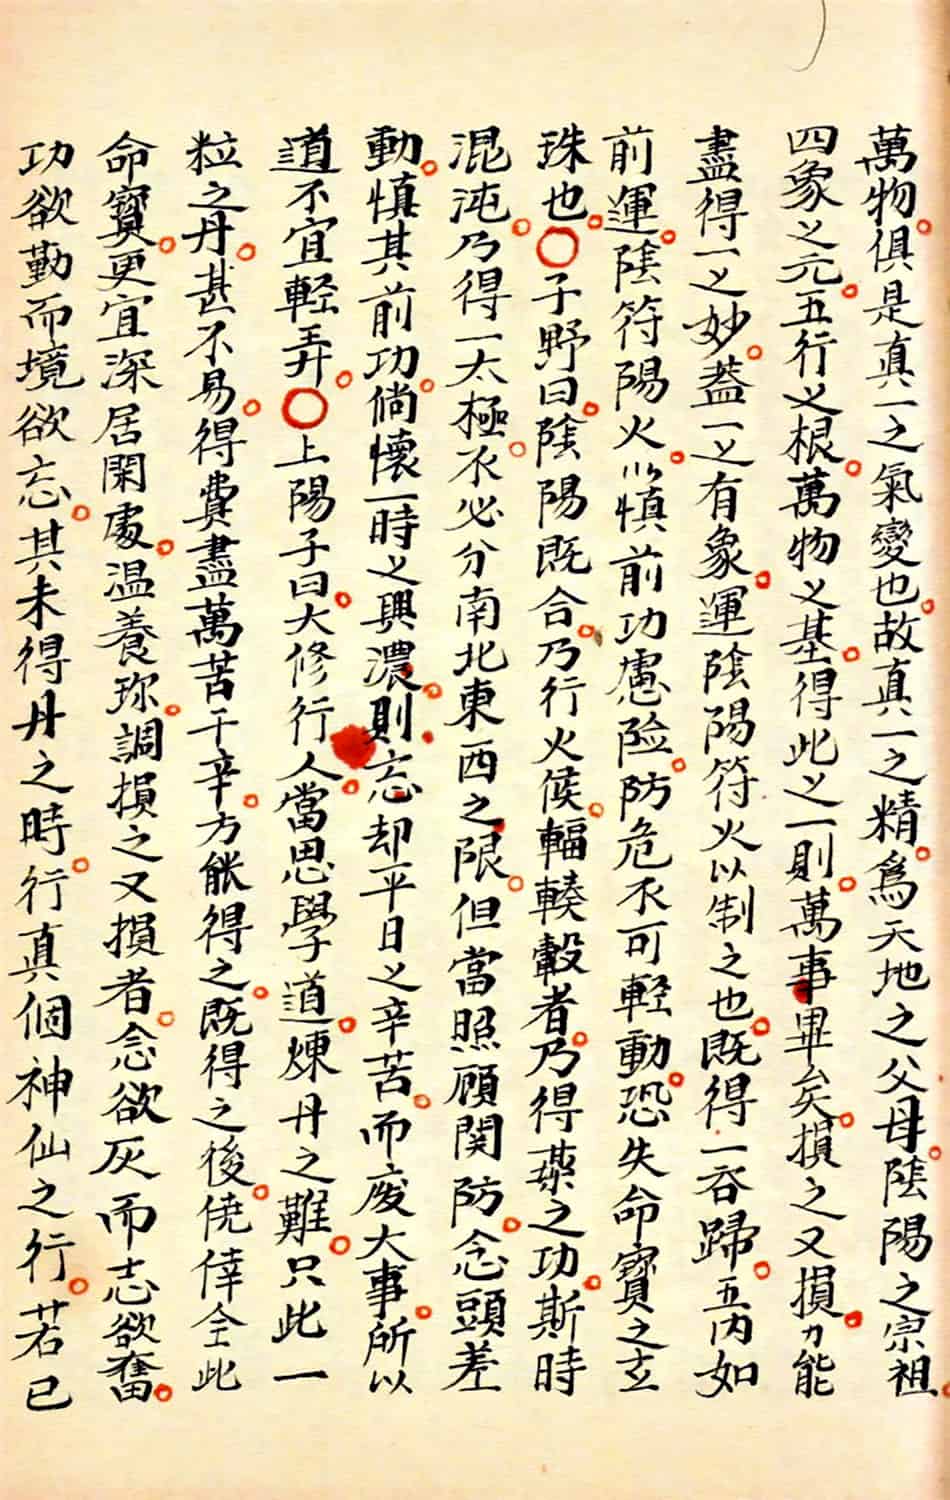 萬物俱是真一之氣變也故真一之精爲天地之父母陰陽之宗祖
四象之元五行之根萬物之基得此之一則萬事畢矣損之又損乃能
盡得一之妙蓋一之有象運陰陽符火以制之也既得一吞歸五內如
前運陰符陽火以慎前功慮險防危不可輕動恐失命寶之玄
珠也〇子野曰陰陽既合乃行火候輻輳轂者乃得藥之功斯時
混沌乃得一太極不必分南北東西之限但當照顧関防念頭差
動慎其前功倘懷一時之興濃則忘却平日之辛苦而廢大事所以
道不宜輕弄〇上陽子曰大修行人當思學道煉丹之難只此一
粒之丹甚不易得費盡萬苦千辛方能得之既得之後僥倖全此
命寶更宜深居閑處温養珎調損之又損者念欲灰而志欲奮
功欲勤而境欲忘其未得丹之時行真個神仙之行若已